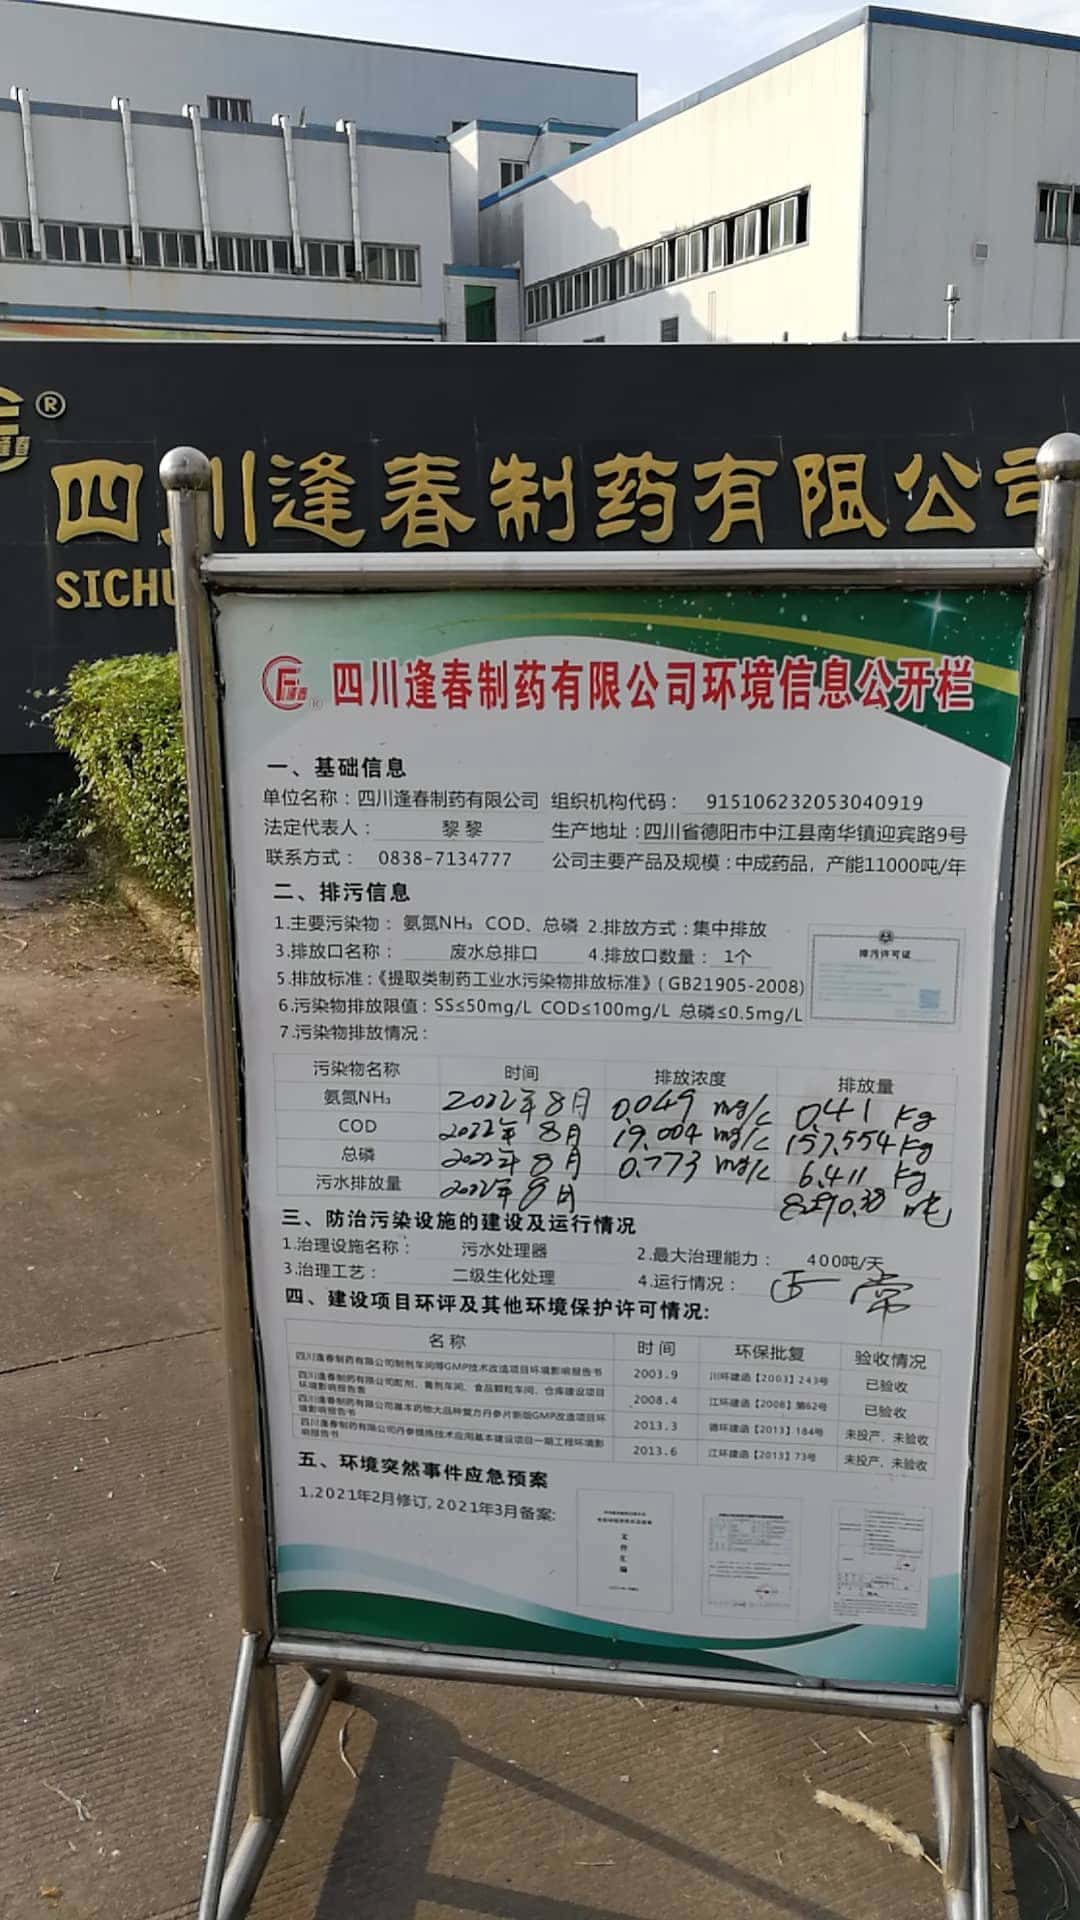 ®
四川逢春制药有限公司
SICHU
逢春® 四川逢春制药有限公司环境信息公开栏
一、基础信息
单位名称：四川逢春制药有限公司 组织机构代码： 915106232053040919
法定代表人： 黎黎 生产地址：四川省德阳市中江县南华镇迎宾路9号
联系方式： 0838-7134777 公司主要产品及规模：中成药品，产能11000吨/年
二、排污信息
1.主要污染物： 氨氮NH₃ COD、总磷 2.排放方式：集中排放
3.排放口名称： 废水总排口 4.排放口数量： 1个
5.排放标准：《提取类制药工业水污染物排放标准》(GB21905-2008)
6.污染物排放限值：SS≤50mg/L COD≤100mg/L 总磷≤0.5mg/L
7.污染物排放情况：
排污许可证
污染物名称 时间 排放浓度 排放量
氨氮NH₃ 2022年8月 0.049 mg/L 0.41 Kg
COD 2022年8月 19.004 mg/L 157.554Kg
总磷 2022年8月 0.773 mg/L 6.411 Kg
污水排放量 2022年8月 8290.38 吨
三、防治污染设施的建设及运行情况
1.治理设施名称： 污水处理器 2.最大治理能力： 400吨/天
3.治理工艺： 二级生化处理 4.运行情况： 正常
四、建设项目环评及其他环境保护许可情况:
名称 时间 环保批复 验收情况
四川逢春制药有限公司制剂车间等GMP技术改造项目环境影响报告书 2003.9 川环建函【2003】243号 已验收
四川逢春制药有限公司酊剂、膏剂车间、食品颗粒车间、仓库建设项目
环境影响报告表 2008.4 江环建函【2008】第62号 已验收
四川逢春制药有限公司基本药物大品种复方丹参片新版GMP改造项目环
境影响报告书 2013.3 德环建函【2013】184号 未投产、未验收
四川逢春制药有限公司丹参提炼技术应用基本建设项目一期工程环境影
响报告书 2013.6 江环建函【2013】73号 未投产、未验收
五、环境突然事件应急预案
1.2021年2月修订,2021年3月备案:
文件汇编